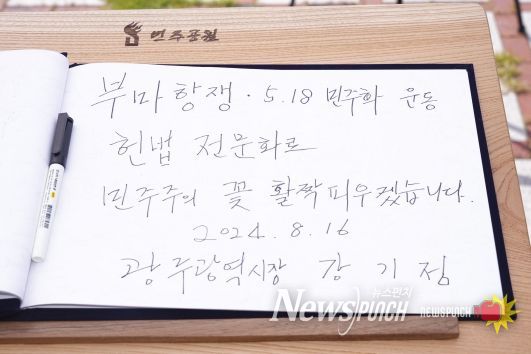 민주공원
부마항쟁·5.18 민주화 운동
헌법 전문화로
민주주의 꽃 활짝 피우겠습니다.
2024.8.16
광주광역시장 강기정
뉴스펀치
NewsPUNCH
NEWSPUNCH